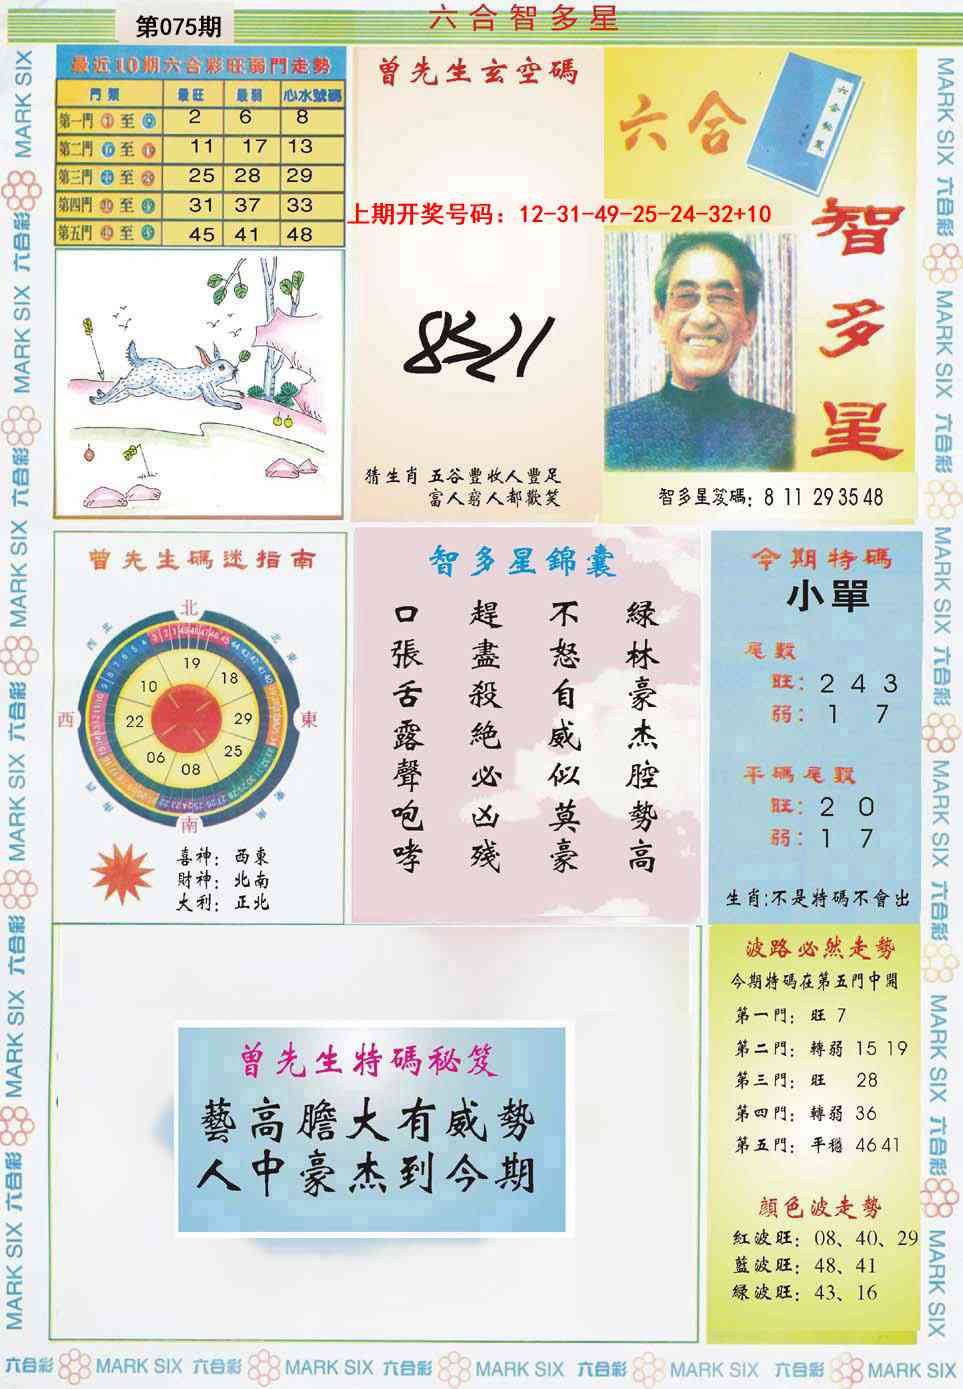 第075期
六合智多星
最近10期六合彩旺弱門走勢
門類 最旺 最弱 心水號碼
第一門 至 2 6 8
第二門 至 11 17 13
第三門 至 25 28 29
第四門 至 31 37 33
第五門 至 45 41 48
曾先生玄空碼
六合
智多星
上期开奖号码：12-31-49-25-24-32+10
猜生肖 五谷豐收人豐足
富人窮人都歡笑
智多星笈碼: 8 11 29 35 48
曾先生碼迷指南
北
西北
東北
西
東
西南
東南
南
19
18
29
25
08
06
22
10
喜神: 西東
財神: 北南
大利: 正北
智多星錦囊
綠林豪杰腔勢高
不怒自威似莫豪
趕盡殺絕必凶殘
口張舌露聲咆哮
今期特碼
小單
尾數
旺: 2 4 3
弱: 1 7
平碼尾數
旺: 2 0
弱: 1 7
生肖:不是特碼不會出
曾先生特碼秘笈
藝高膽大有威勢
人中豪杰到今期
波路必然走勢
今期特碼在第五門中開
第一門: 旺 7
第二門: 轉弱 15 19
第三門: 旺 28
第四門: 轉弱 36
第五門: 平穩 46 41
顔色波走勢
紅波旺: 08、40、29
藍波旺: 48、41
綠波旺: 43、16
六合彩 MARK SIX 六合彩 MARK SIX 六合彩 MARK SIX 六合彩 MARK SIX 六合彩